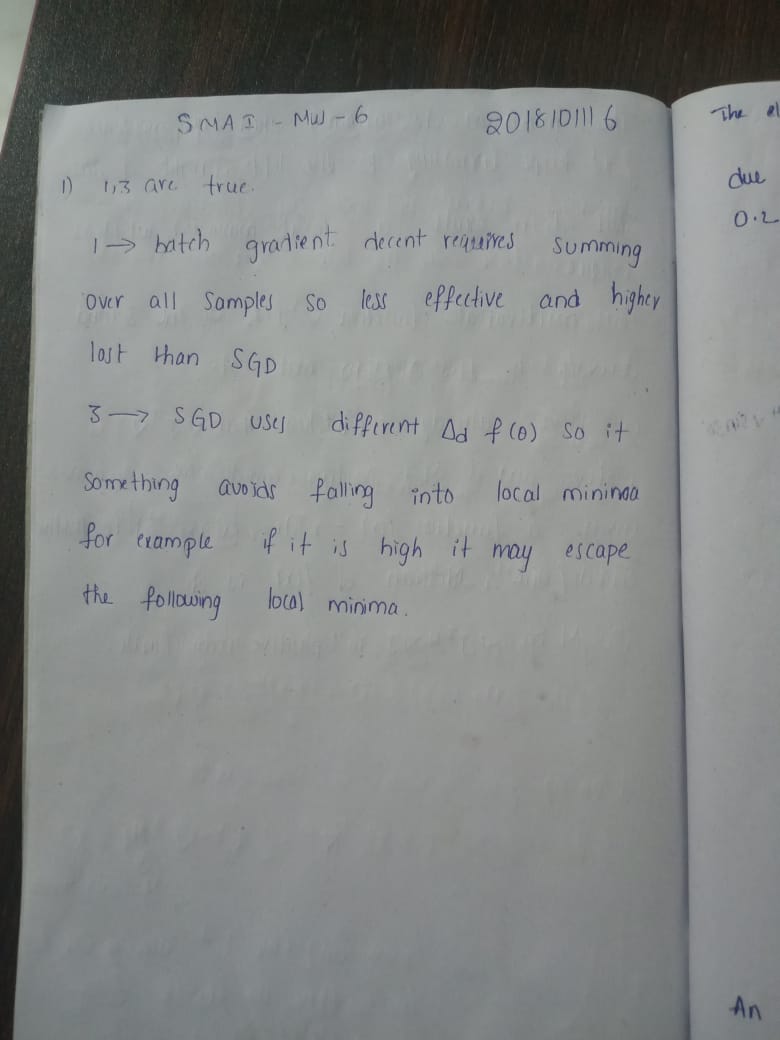 SMAI - MW - 6 2018101116
1) 1,3 are true.
1 → batch gradient decent requires summing
over all samples so less effective and higher
lost than SGD
3 → SGD uses different Δd f(θ) so it
something avoids falling into local mininaa
for example if it is high it may escape
the following local minima.
The
due
0.2
An